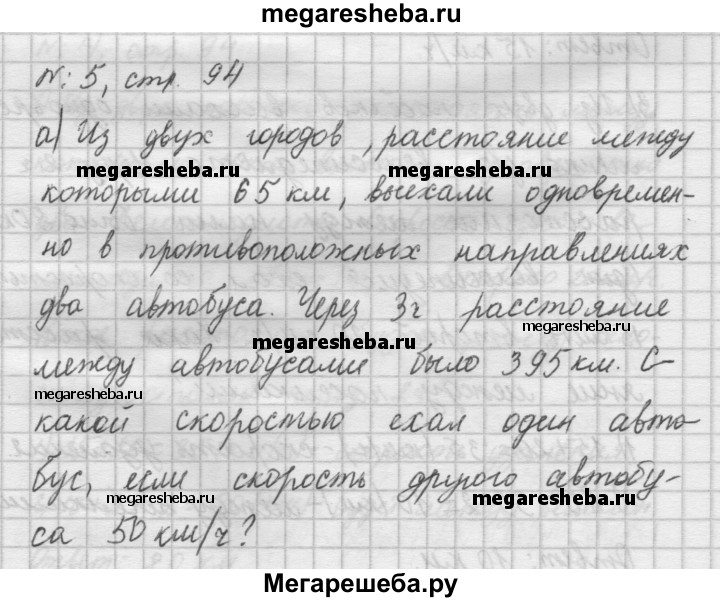 megaresheba.ru
N: 5, стр. 94
а) Из двух городов, расстояние между
megaresheba.ru megaresheba.ru
которыми 65 км, выехали одновремен-
megaresheba.ru megaresheba.ru
но в противоположных направлениях
два автобуса. Через 3ч расстояние
megaresheba.ru megaresheba.ru
между автобусами было 395 км. С
megaresheba.ru megaresheba.ru
какой скоростью ехал один авто-
бус, если скорость другого автобу-
megaresheba.ru megaresheba.ru
са 50 км/ч?
Мегарешеба.ру